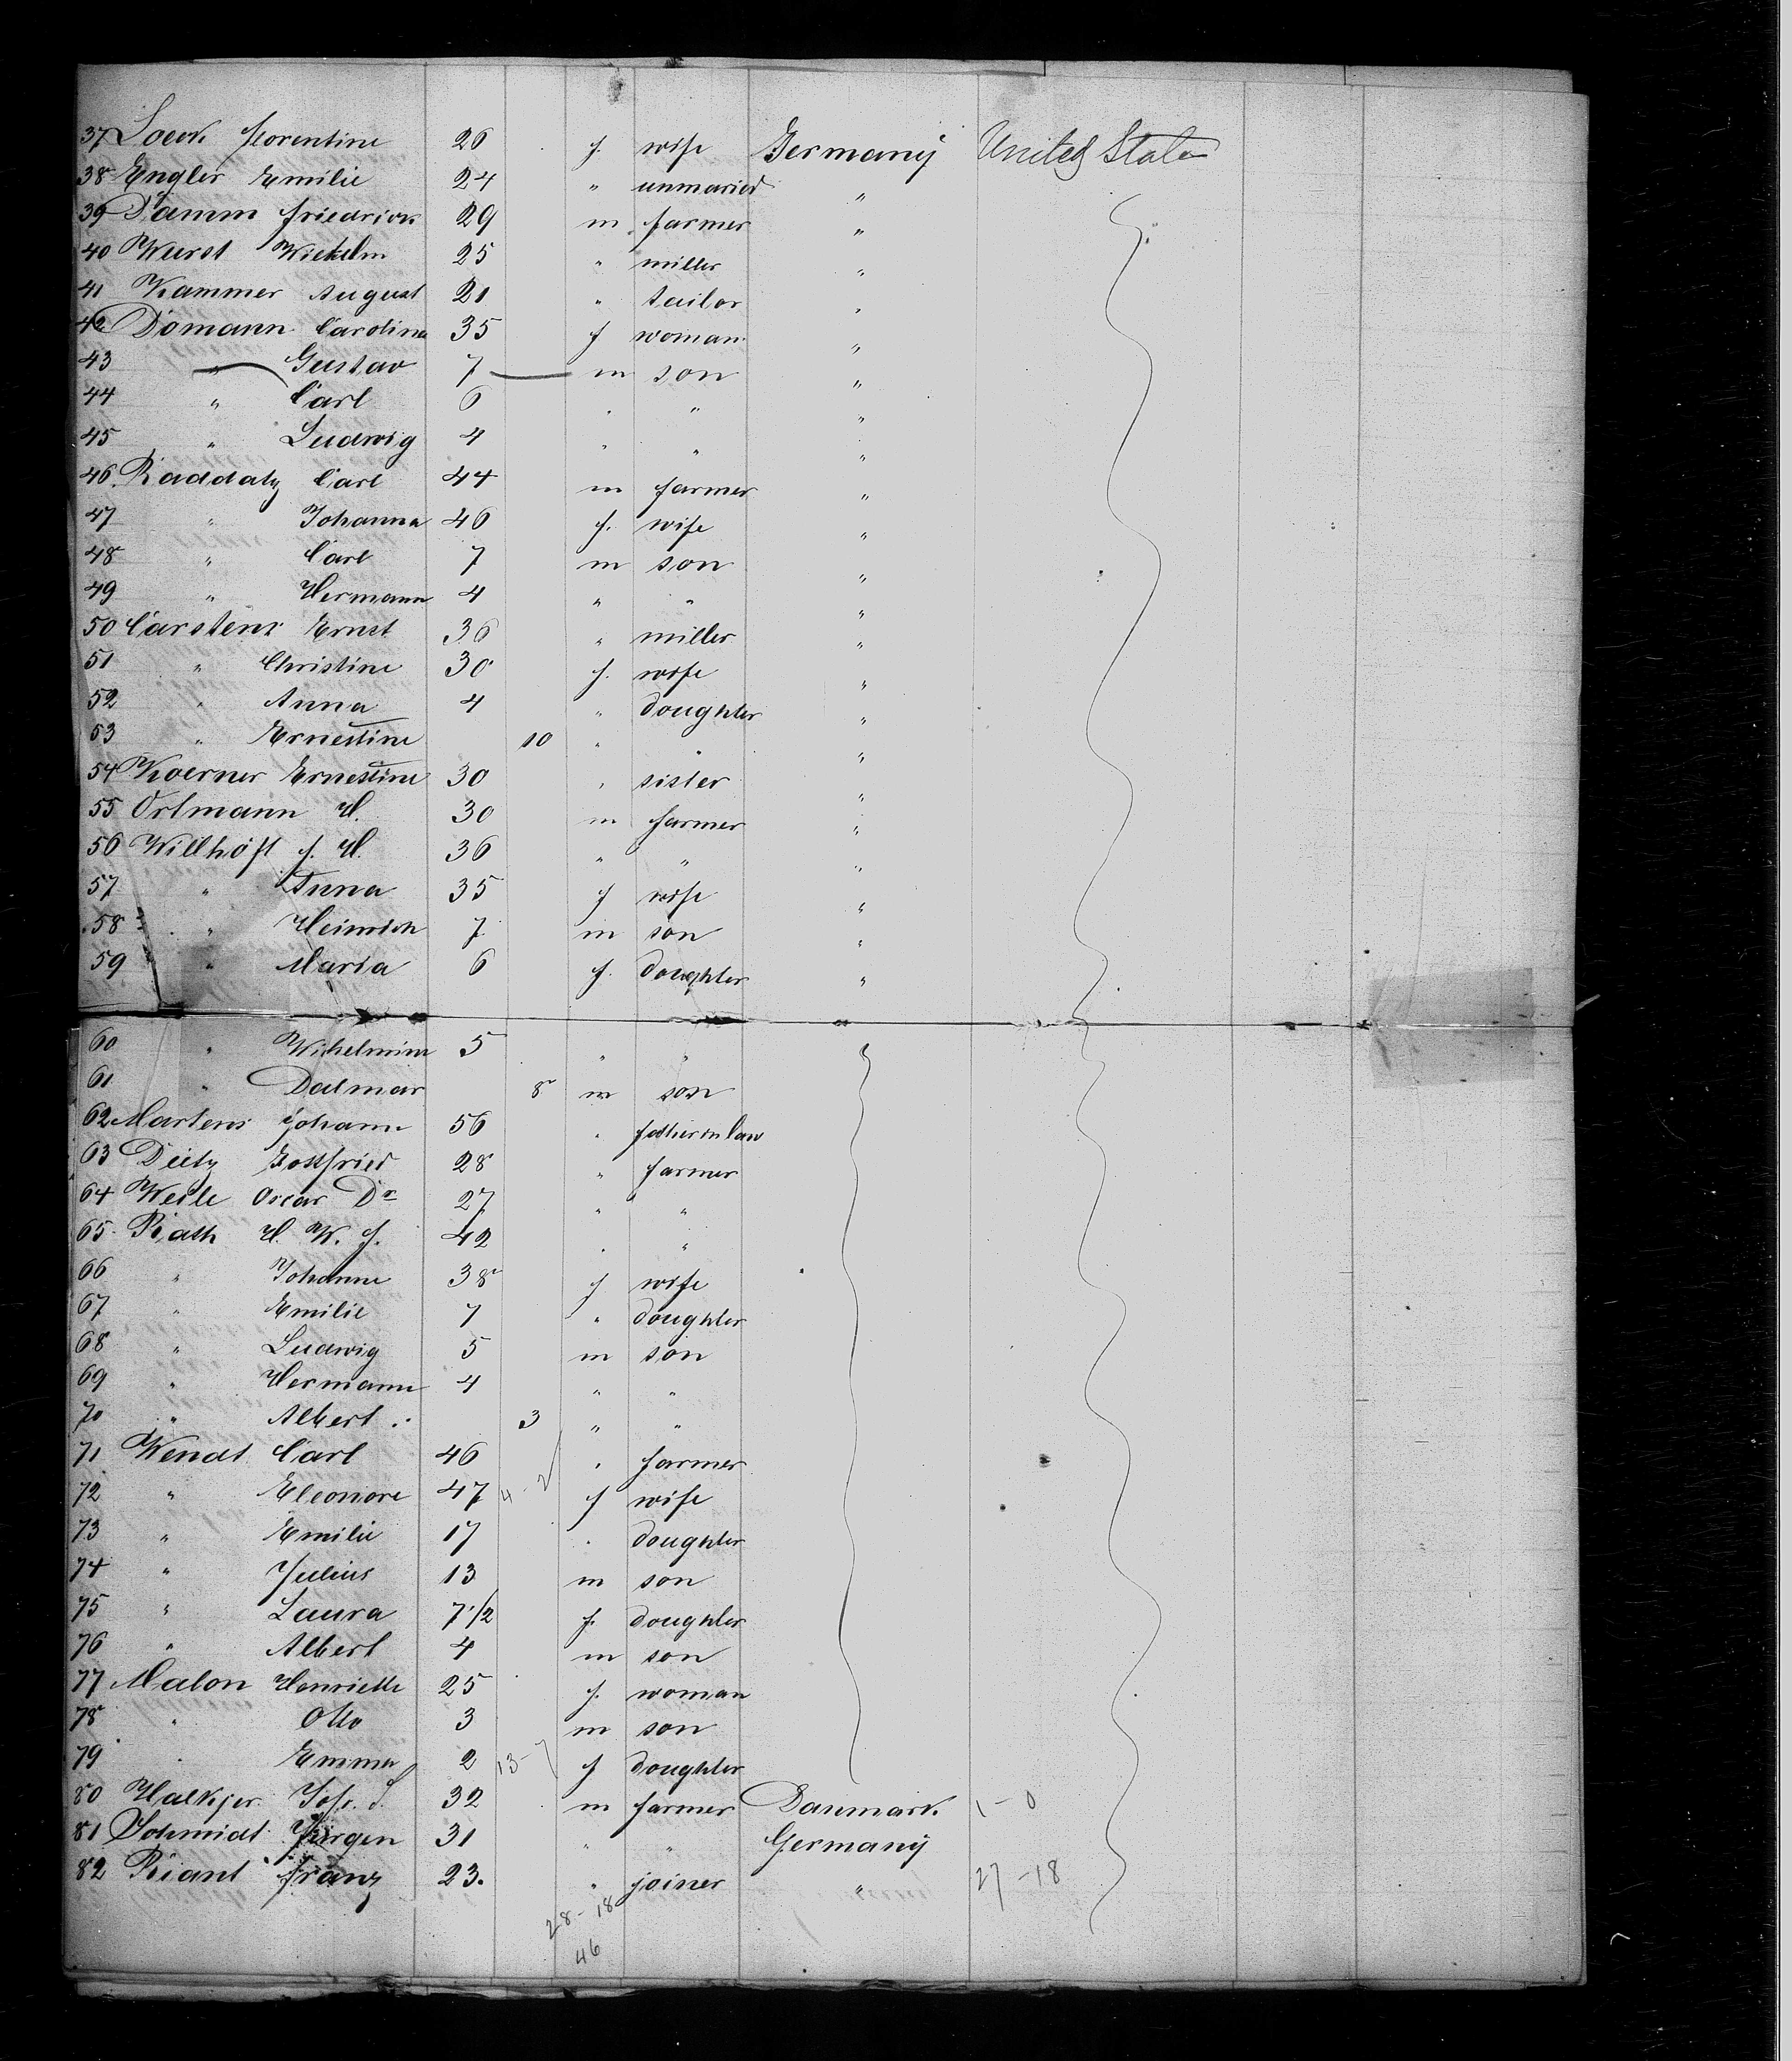 37 Loeck Florentine 26 f. wife Germany United States
38 Engler Emilie 24 " unmaried "
39 Damm Friedrich 29 m farmer "
40 Wurst Wiehelm 25 " miller "
41 Kammer August 21 " tailor "
42 Domann Carolina 35 f woman "
43 " Gustav 7 m son "
44 " Carl 6 " " "
45 " Ludwig 4 " " "
46. Raddatz Carl 44 m farmer "
47 " Johanna 46 f. wife "
48 " Carl 7 m son "
49 " Hermann 4 " " "
50 Carstens Ernst 36 " miller "
51 " Christine 30 f. wife "
52 " Anna 4 " doughter "
53 " Ernestine 10 " " "
54 Koerner Ernestine 30 " sister "
55 Ortmann H. 30 m farmer "
56 Willhöft f. H. 36 " " "
57 " Anna 35 f wife "
58 " Heinrich 7 m son "
59 " Maria 6 f. doughter "
60 " Wihelmine 5 " "
61 " Dalmar 8 m son
62 Martens Johann 56 " father in law
63 Dietz Gottfried 28 " farmer
64 Weile Oscar Dr 27 " "
65. Rath H. W. f. 42 " "
66 " Johanne 38 f wife
67 " Emilie 7 " doughter
68 " Ludwig 5 m son
69 " Hermann 4 " "
70 " Albert 3 " "
71 Wendt Carl 46 " farmer
72 " Eleonore 47 4-2 f wife
73 " Emilie 17 " doughter
74 " Julius 13 m son
75 " Laura 7 1/2 f. doughter
76 " Albert 4 m son
77 Malon Henriette 25 f. woman
78 " Otto 3 m son
79 " Emma 2 13-7 f doughter
80 Halkjer Joh. S. 32 m farmer Danmark 1-0
81 Schmidt Jürgen 31 " " Germany
82 Riant Franz 23. " joiner " 27-18
28-18
46